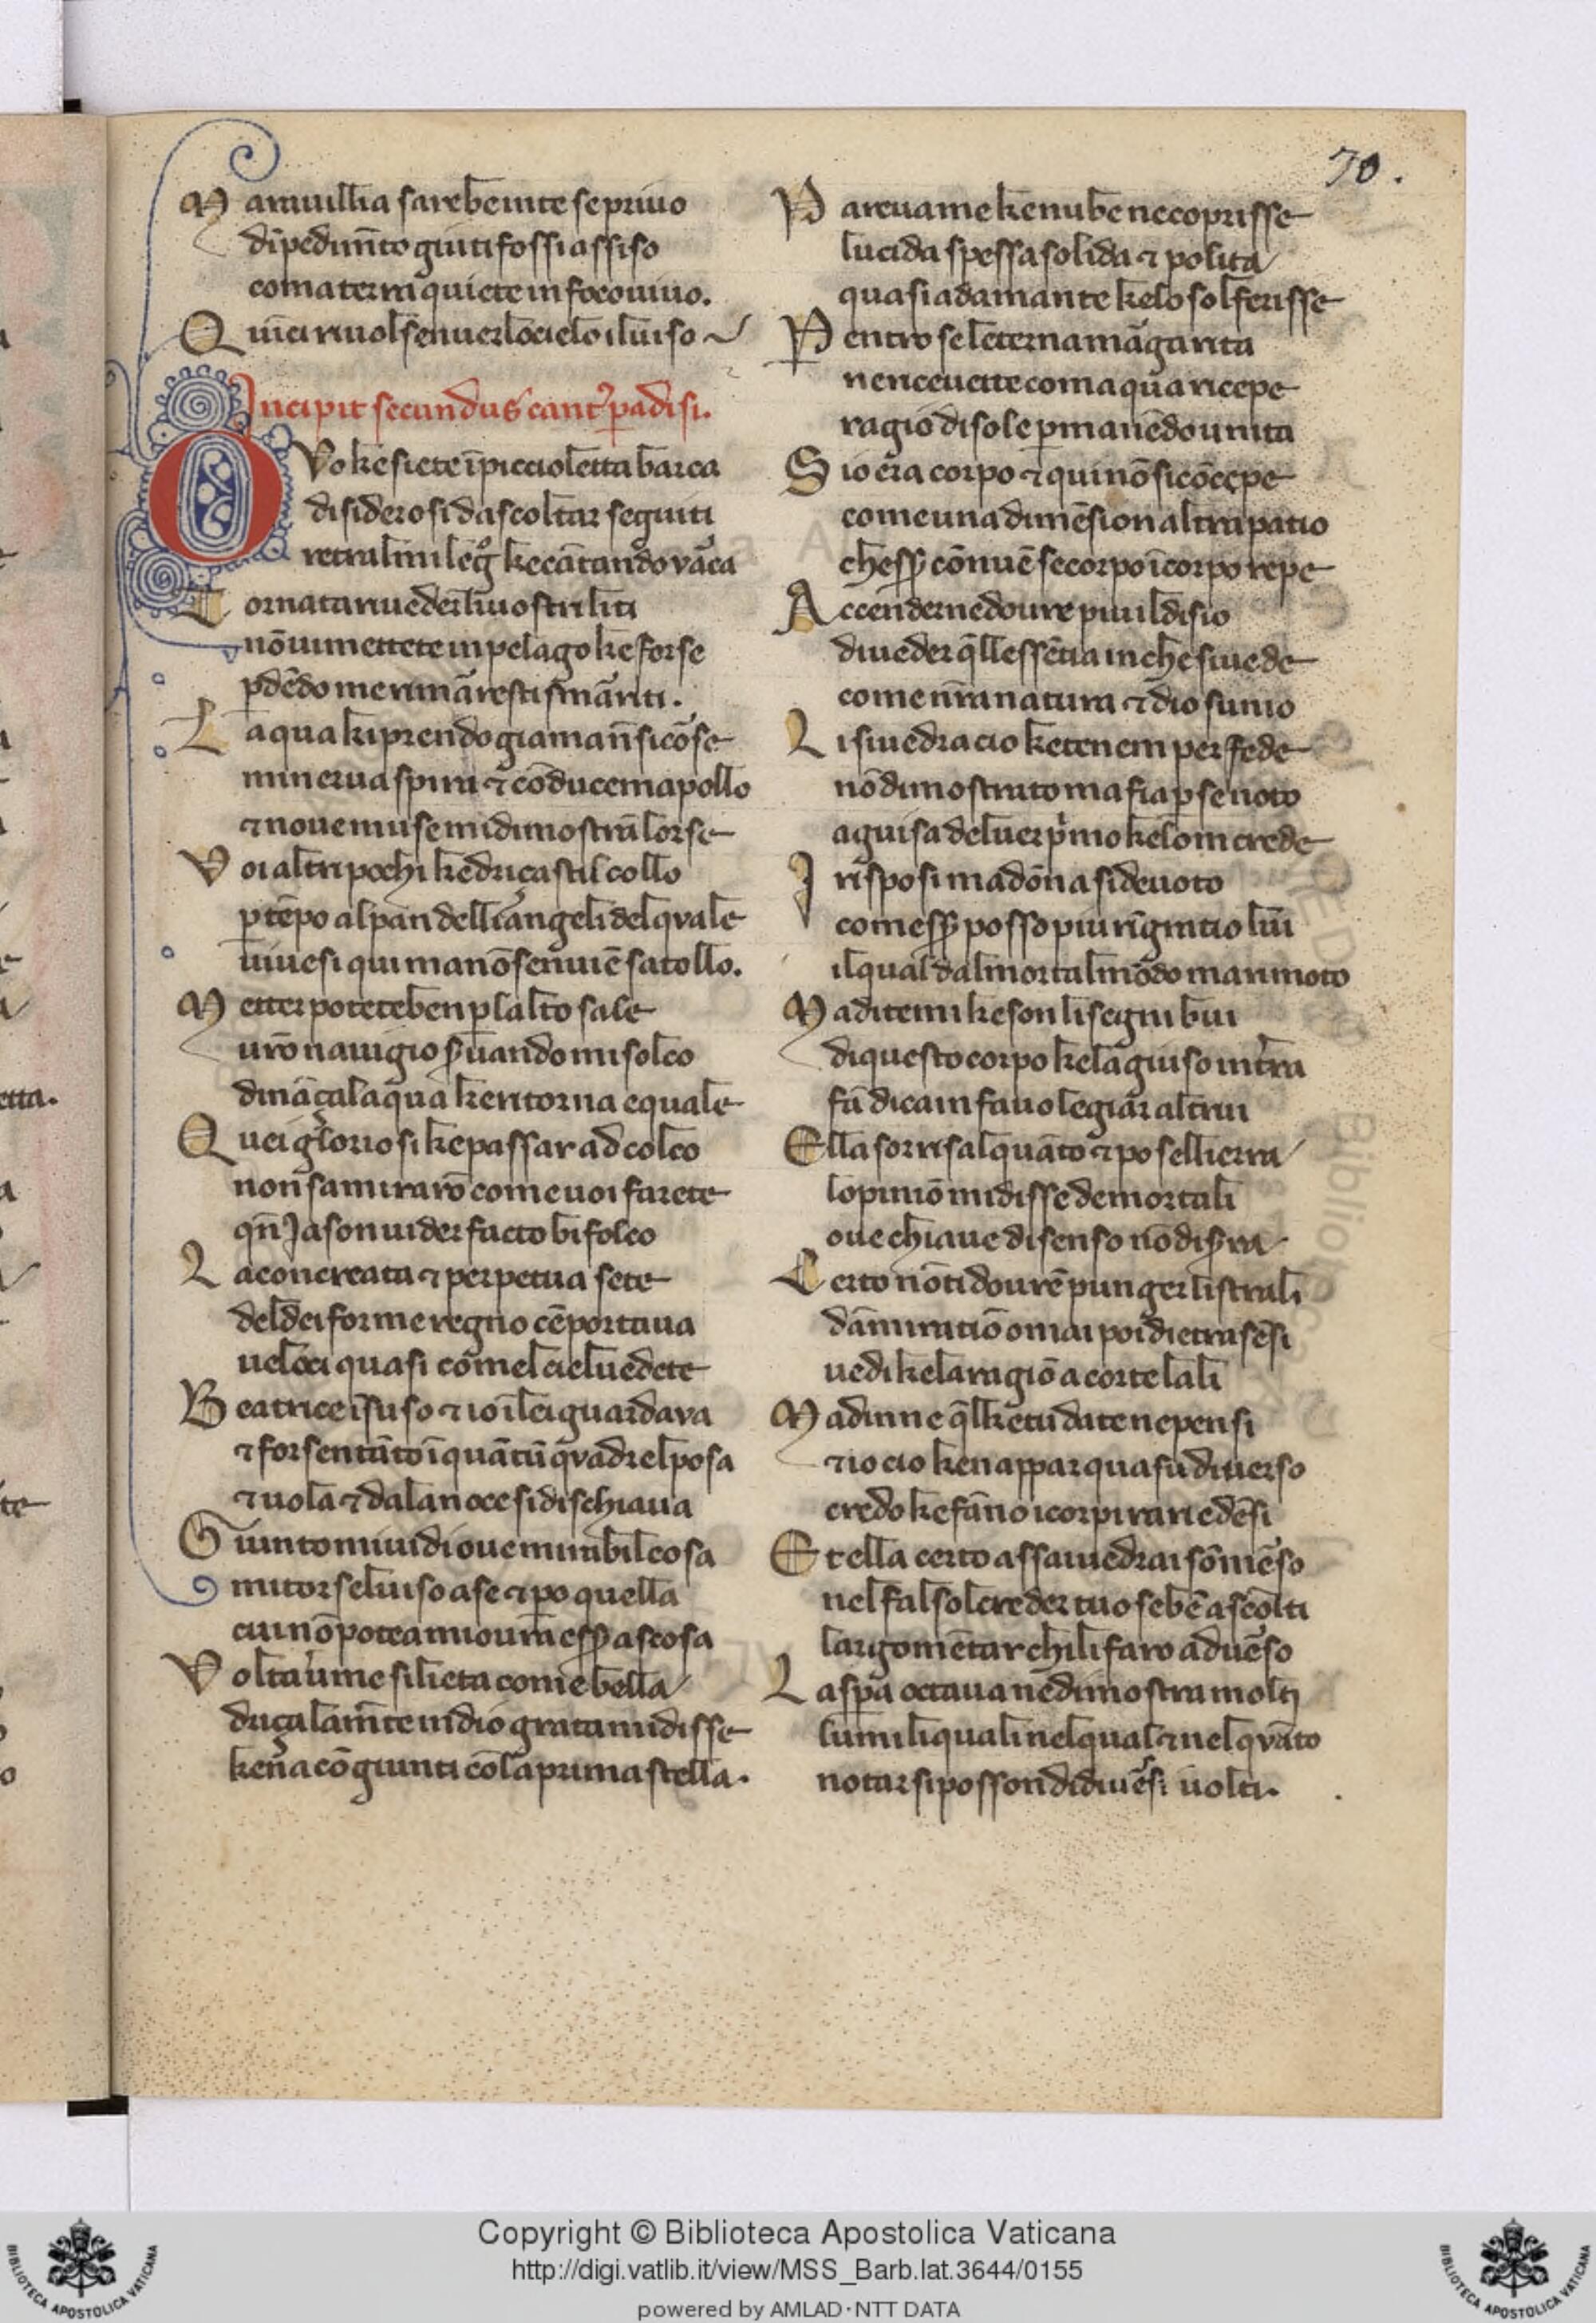 70.
Marauillia sarebe inte se priuo
dīpedimēto giu ti fossi assiso
com a terra quiete in foco uiuo.
Quīci riuolse nuer lo cielo il uiso
Incipit secundus cant' padisi.
O Vo ke siete ī piccioletta barca
disiderosi dascoltar seguiti
retral mi legō ke cātando vāca
Tornata riueder li uostri liti
nō ui mettete in pelago ke forse
pdēdo me rimāresti smariti.
Laqua ki prendo giamai si cōse
minerua spira ⁊ cōducemi apollo
⁊ noue muse mi dimostrā lorse
Voi altri pochi ke driçasti l collo
p tēpo al pan delli angeli del qvale
uiuesi qui ma nō sen uiē satollo.
Metter potete ben p lalto sale
uro nauigio suando mi solco
dināçalaqua ke ritorna equale
Quei gloriosi ke passar ad colco
non samiraro come uoi farete
qn̄ Jason uider facto bifolco
La concreata ⁊ perpetua sete
del deiforme regno cē portaua
ueloci quasi comel ciel uedete
Beatrice ī suso ⁊ io ī lei guardava
⁊ forse n tāto ī quātū qvadrel posa
⁊ uola ⁊ dala noce si dischiaua
Giunto mi uidi oue mirabil cosa
mi torse l uiso a se ⁊ po quella
cui nō potea mi oura essē ascosa
Volta uer me si lieta come bella
driça la mēte in dio grata mi disse
ke na cōgiunti cō la prima stella.
Pareua me ke nube ne coprisse
lucida spessa solida ⁊ polita
quasi adamante ke lo sol ferisse
Pentro se leterna māgarita
ne riceuette com aqua ricepe
ragio di sole pmanēdo unita
Sio era corpo ⁊ qui nō si cōcepe
come una dimēsion altra patio
chessē cōuiē se corpo ī corpo repe
Accender ne doure piu il disio
di ueder qlla essētia in che si uede
come nra natura ⁊ dio sunio
Li si uedra cio ke tenem per fede
nō dimostrato ma fia p se noto
a guisa del uer pmo ke lom crede
I risposi madōna si deuoto
comessē posso piu rigratio lui
il qual dal mortal mōdo ma rimoto
Ma ditemi ke son li segni bui
di questo corpo ke la giuso in tra
fā di cain fauolegiar altrui
Ella sorrisalquāto ⁊ po selli erra
lopiniō mi disse de mortali
oue chiaue di senso nō diserra
Certo nō ti dourē punger li strali
dāmiratiō omai poi dietra sēsi
uedi ke la ragiō a corte lali
Ma dinne ql ke tu da te ne pensi
⁊ io cio ke nappar qua su diuerso
credo ke fāno i corpi rari edēsi
Et ella certo assai uedrai sōmēso
nel falso l creder tuo se bē ascolti
largomētar chi li faro aduēso
La spa octaua ne dimostra molti
lumi li quali nel qual ⁊ nel qvāto
notar si posson di diuēsi uolti.
etta.
te
Copyright © Biblioteca Apostolica Vaticana
http://digi.vatlib.it/view/MSS_Barb.lat.3644/0155
powered by AMLAD·NTT DATA
BIBLIOTECA APOSTOLICA VATICANA
BIBLIOTECA APOSTOLICA VATICANA